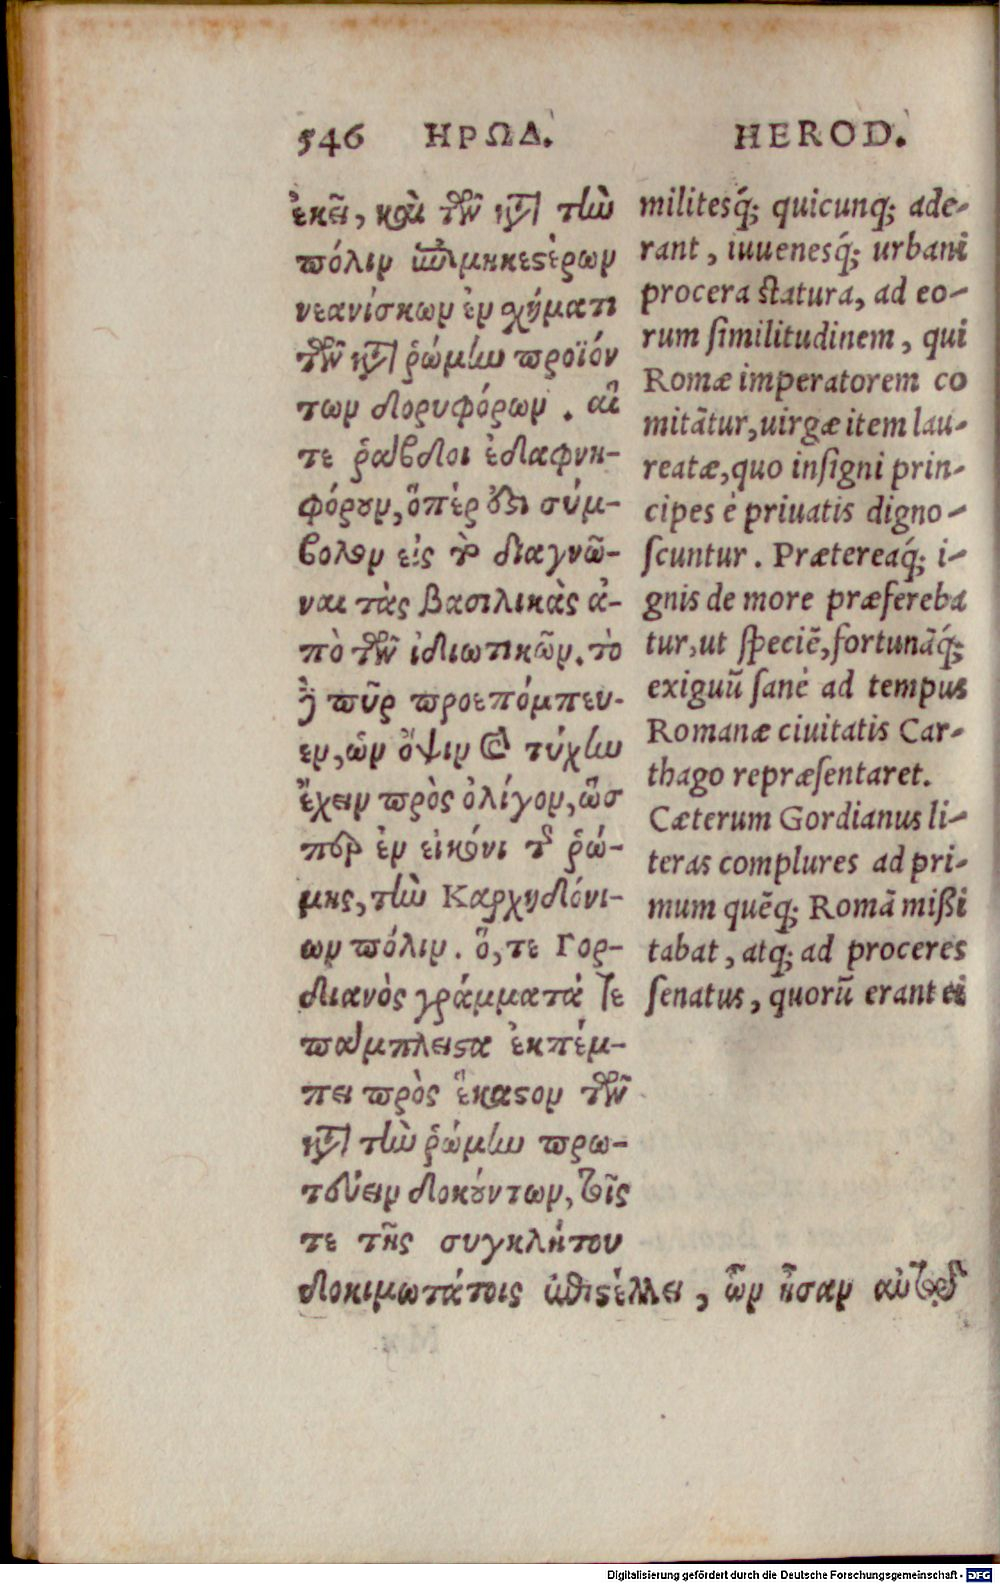 546 ΗΡΩΔ.
ἐκεῖ, καὶ τῶν κατὰ τὴν
πόλιν ἐπιμηκεστέρων
νεανίσκων ἐν σχήματι
τῶν κατὰ ῥώμην προϊόν
των δορυφόρων. αἵ
τε ῥάβδοι ἐδαφνη-
φόρουν, ὅπέρ ἐστι σύμ-
βολον εἰς τὸ διαγνῶ-
ναι τὰς βασιλικὰς ἀ-
πὸ τῶν ἰδιωτικῶν. τὸ
δὲ πῦρ προεπόμπευ-
εν, ὡς ὄψιν καὶ τύχην
ἔχειν πρὸς ὀλίγον, ὥσ
περ ἐν εἰκόνι τῆς ῥώ-
μης, τὴν Καρχηδόνι-
ων πόλιν. ὅ, τε Γορ-
διανὸς γράμματά τε
πάμπλειστα ἐκπέμ-
πει πρὸς ἕκαστον τῶν
κατὰ τὴν ῥώμην πρω-
τεύειν δοκούντων, τοῖς
τε τῆς συγκλήτου
δοκιμωτάτοις ἐπιστέλλει, ὧν ἦσαν αὐτοῦ
HEROD.
militesq́; quicunq; ade-
rant, iuuenesq́; urbani
procera statura, ad eo-
rum similitudinem, qui
Romæ imperatorem co
mitātur, uirgæ item lau-
reatæ, quo insigni prin-
cipes è priuatis digno-
scuntur. Prætereaq́; i-
gnis de more præfereba
tur, ut speciē, fortunāq́;
exiguū sanè ad tempus
Romanæ ciuitatis Car-
thago repræsentaret.
Cæterum Gordianus li-
teras complures ad pri-
mum quēq; Romā mißi
tabat, atq; ad proceres
senatus, quorū erant ei
Digitalisierung gefördert durch die Deutsche Forschungsgemeinschaft - DFG